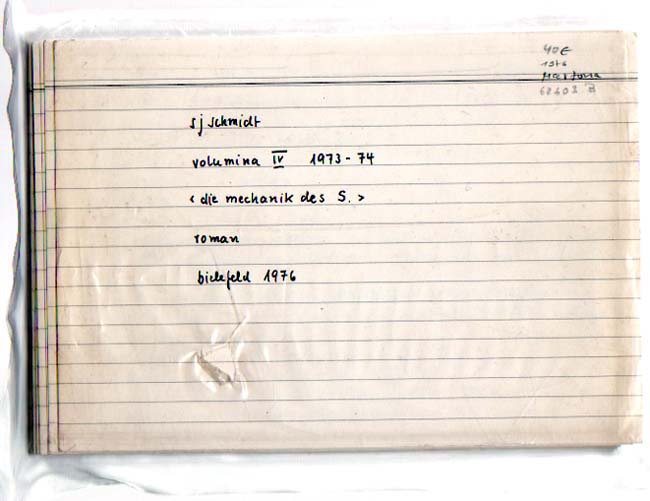 40€
1976
sj schmidt
volumina IV 1973-74
< die mechanik des S. >
roman
bielefeld 1976